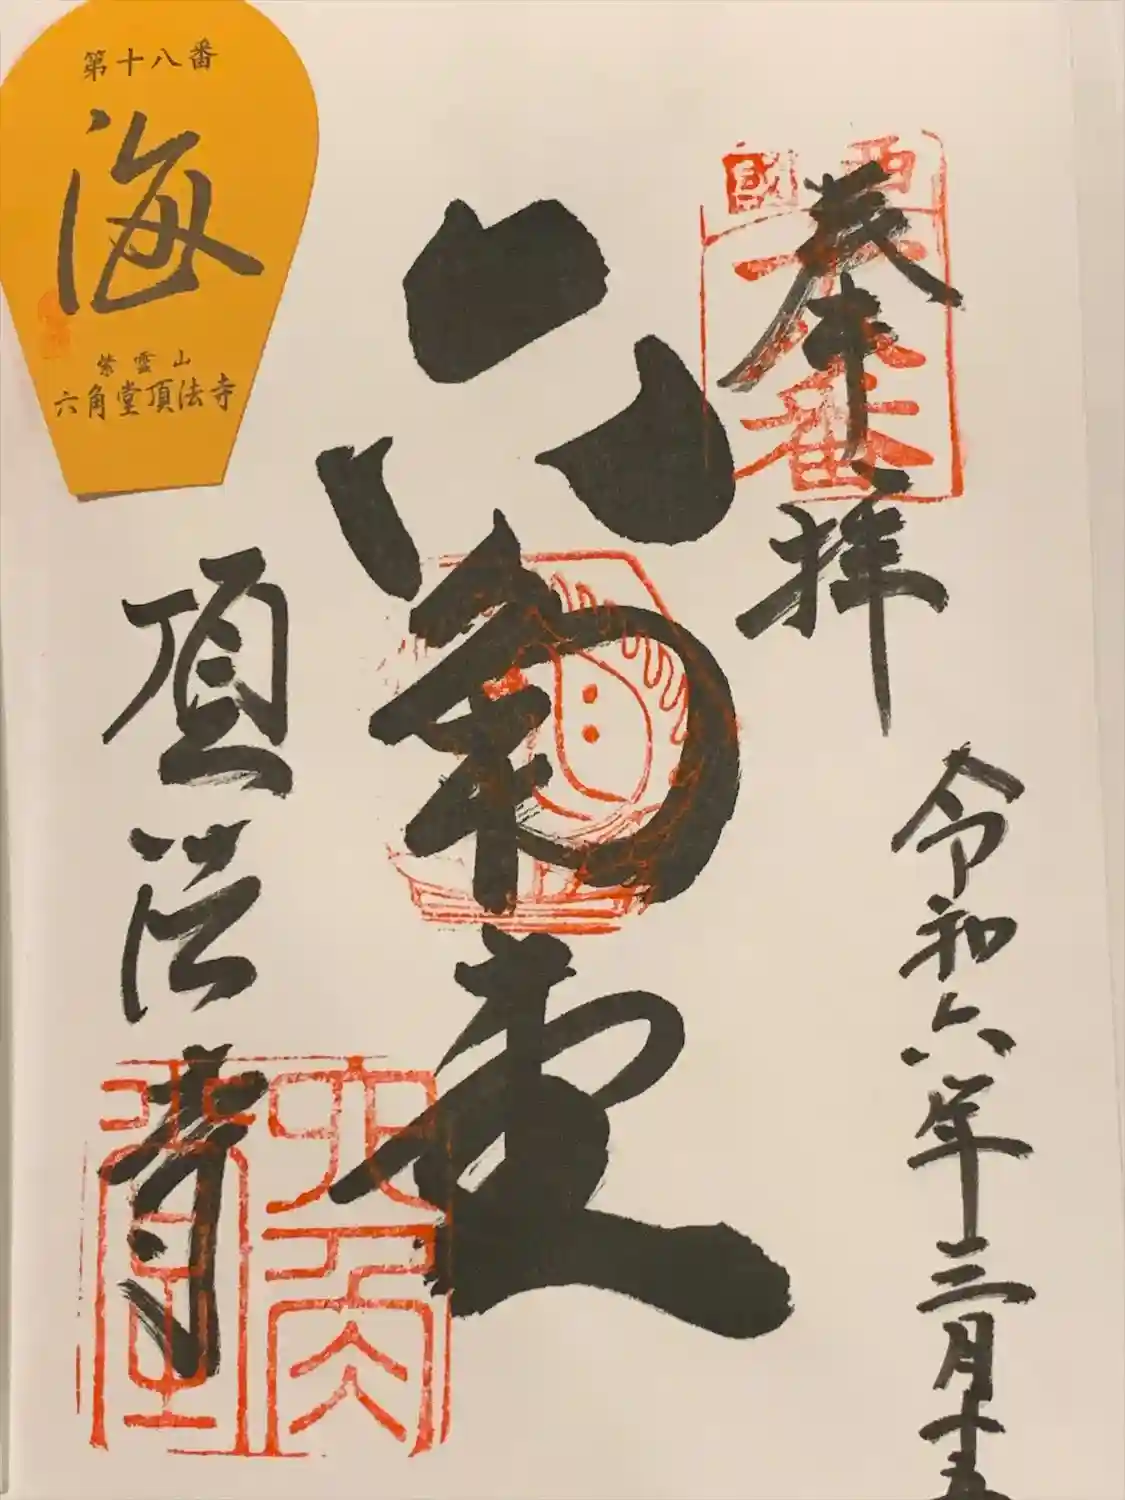 奉拝
西國
十八番
令和六年三月十五
六角堂
頂法寺
六角堂
第十八番
海
紫雲山
六角堂頂法寺